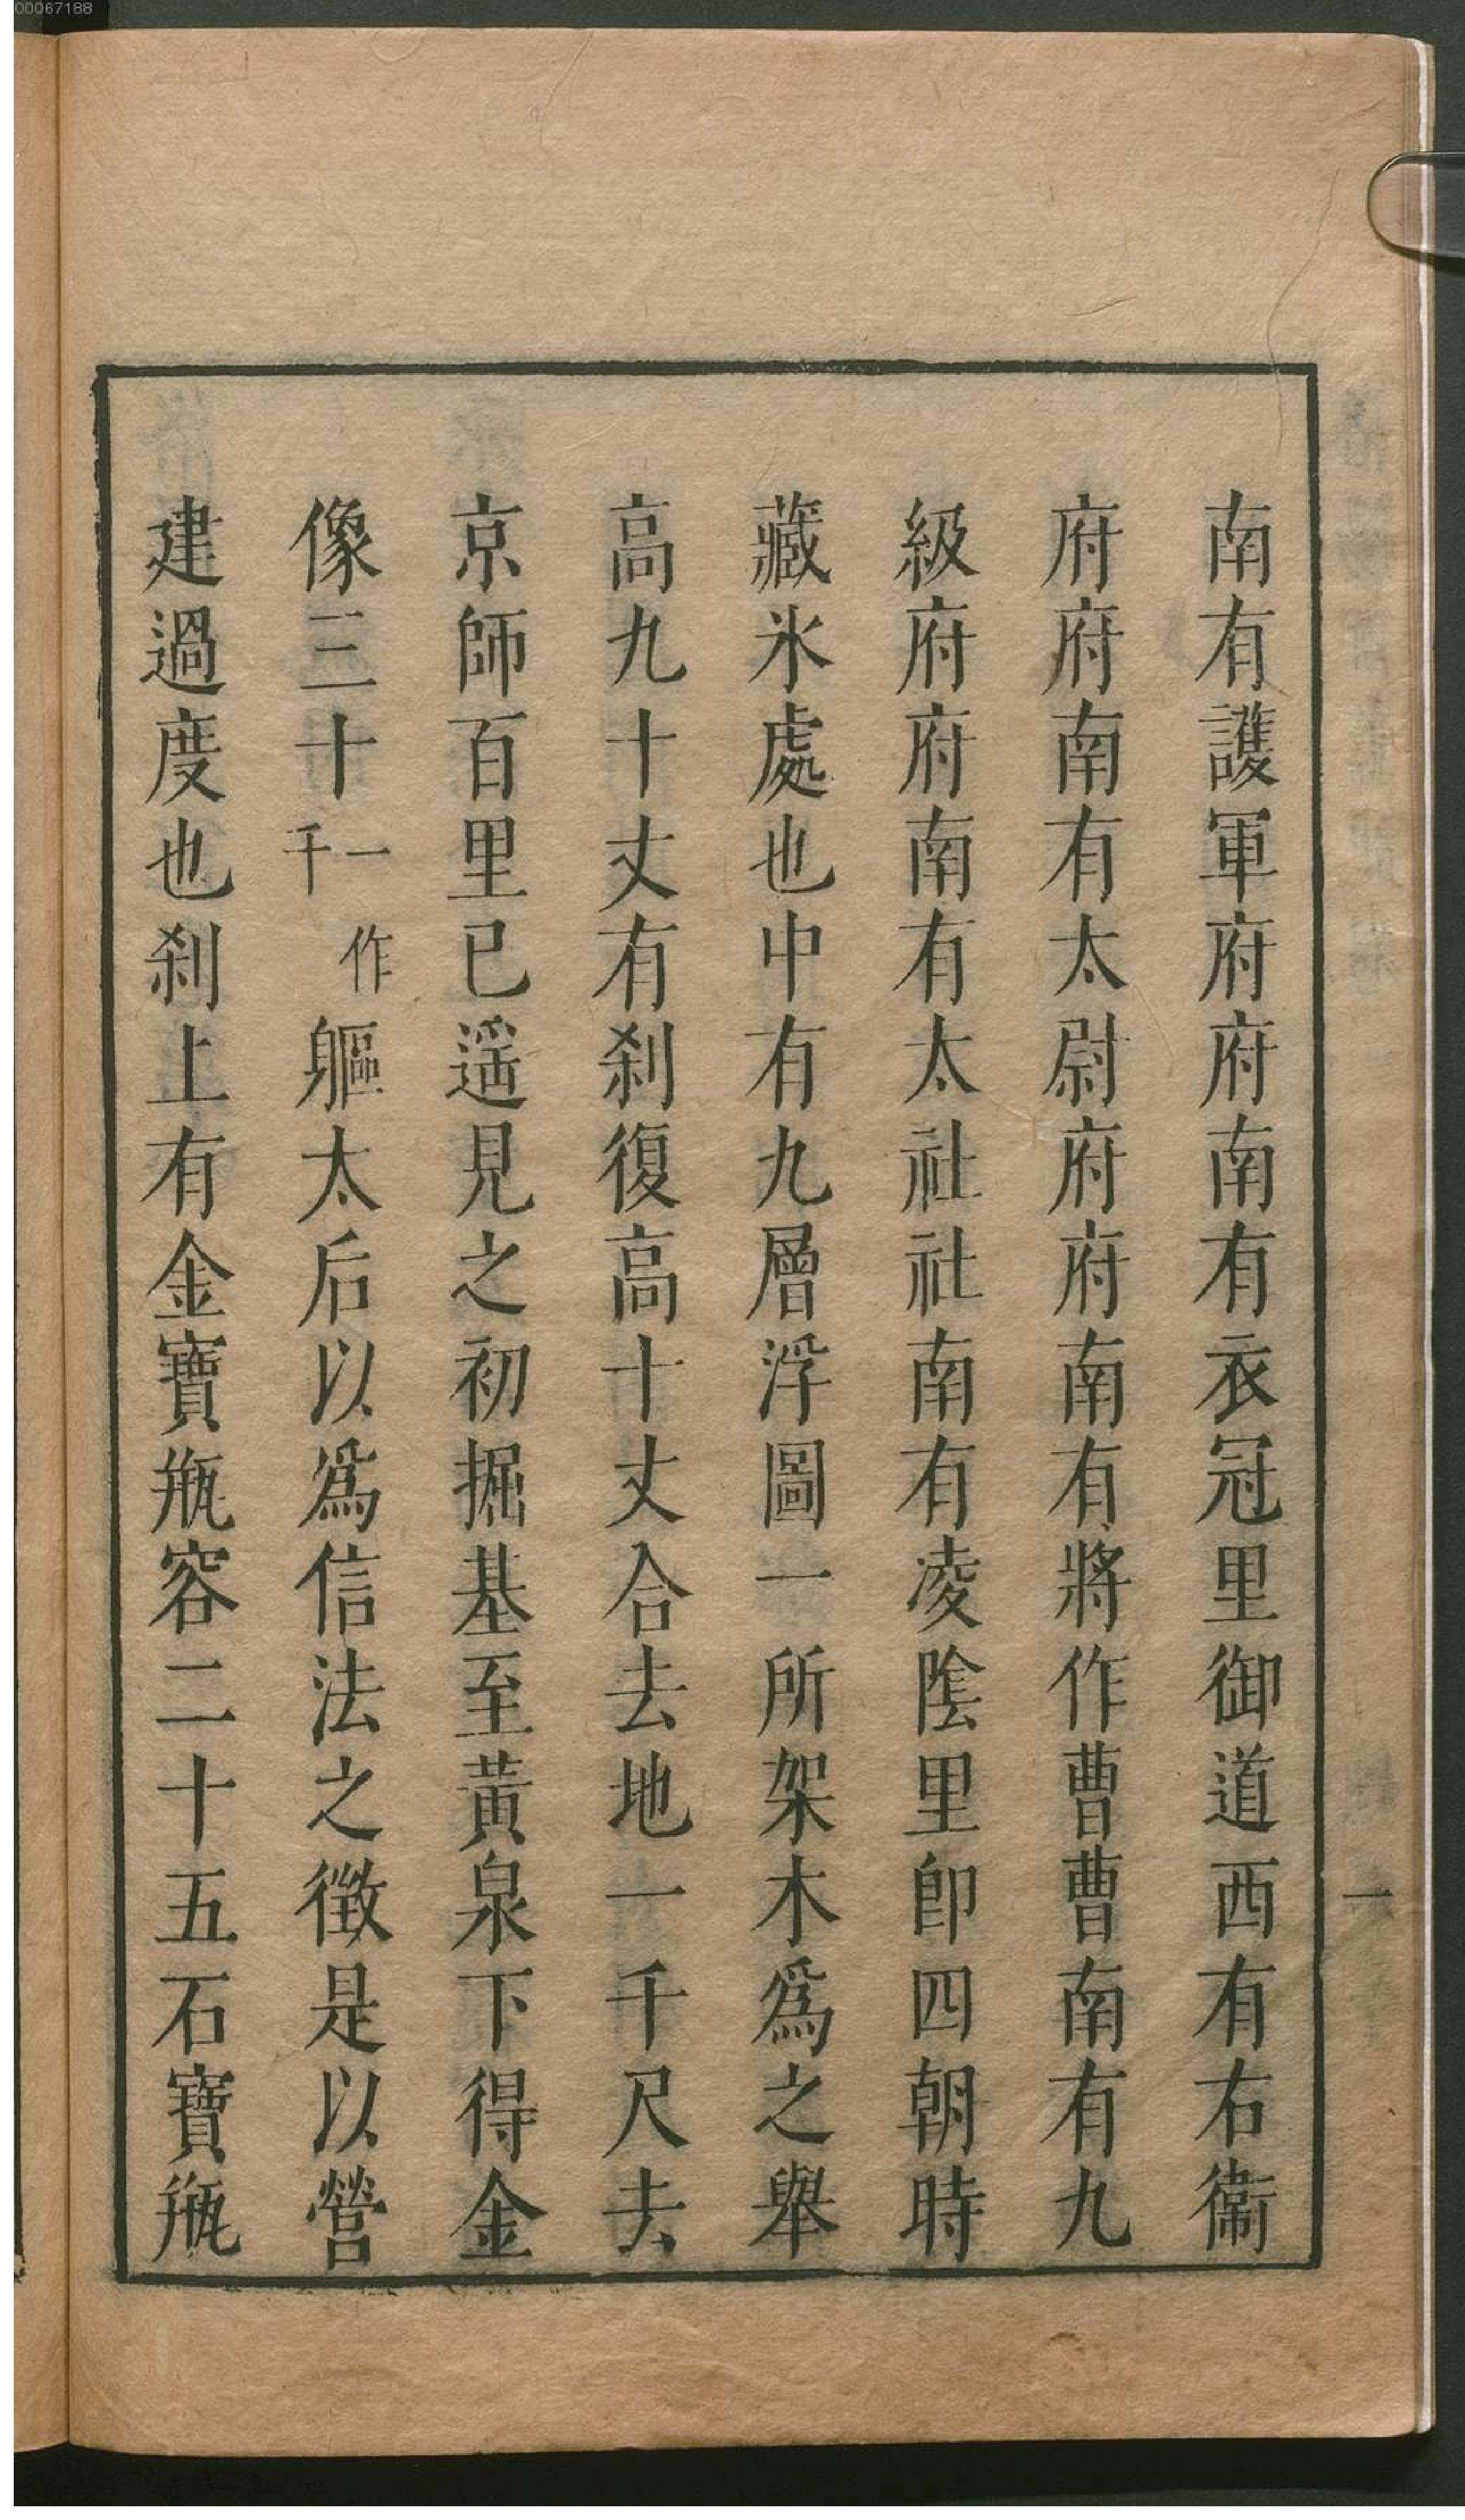 00067188
南有護軍府府南有衣冠里御道西有右衞
府府南有太尉府府南有將作曹曹南有九
級府府南有太社社南有凌陰里卽四朝時
藏氷處也中有九層浮圖一所架木爲之舉
高九十丈有刹復高十丈合去地一千尺去
京師百里已遥見之初掘基至黃泉下得金
像三十一作千軀太后以爲信法之徵是以營
建過度也刹上有金寶瓶容二十五石寶瓶
一